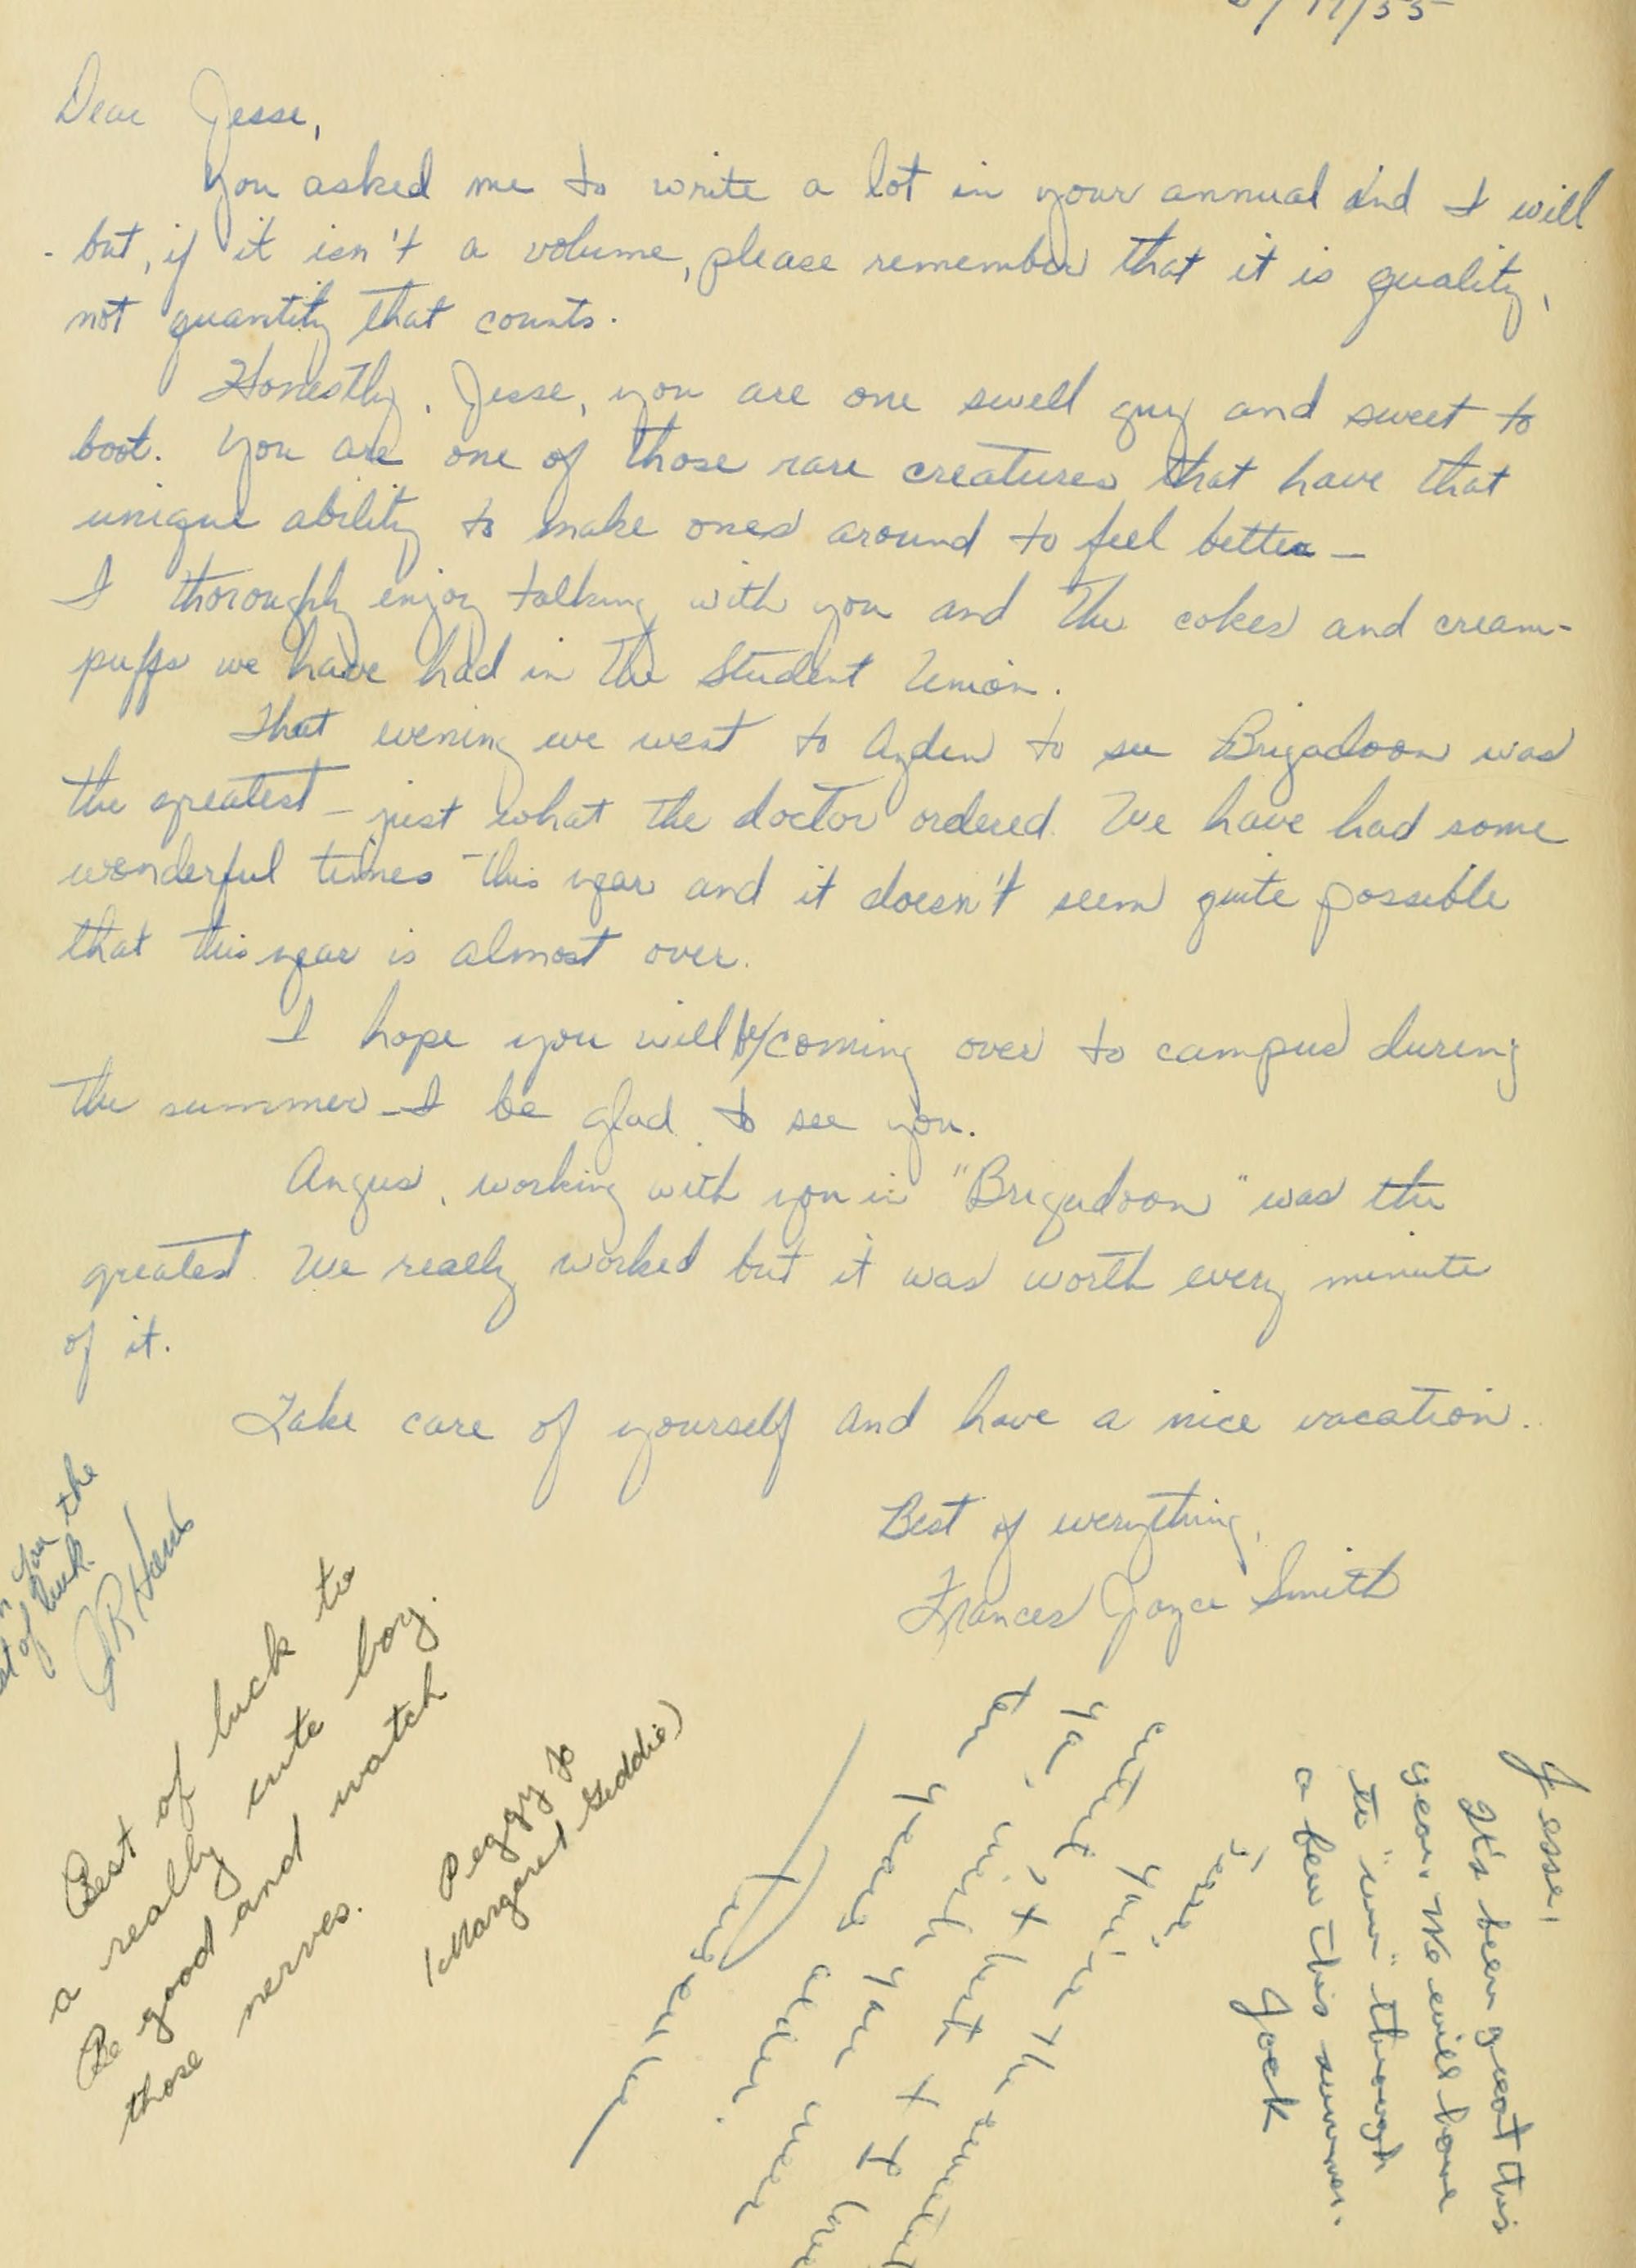 /55
Dear Jesse,
You asked me to write a lot in your annual and I will
- but, if it isn't a volume, please remember that it is quality,
not quantity that counts.
Honestly, Jesse, you are one swell guy and sweet to
boot. You are one of those rare creatures that have that
unique ability to make ones around to feel better -
I thoroughly enjoy talking with you and the cokes and cream-
puffs we have had in the Student Union.
That evening we went to Ayden to see Brigadoon was
the greatest - just what the doctor ordered. We have had some
wonderful times this year and it doesn't seem quite possible
that this year is almost over.
I hope you will be/coming over to campus during
the summer - I be glad to see you.
Angus, working with you in "Brigadoon" was the
greatest. We really worked but it was worth every minute
of it.
Take care of yourself and have a nice vacation.
Best of everything,
Frances Joyce Smith
you the
of luck.
Best of luck to
a really cute boy.
Be good and watch
those nerves.
Peggy Jo
(Margaret Geddie)
Jesse,
cutest you're the sweetest
ya,
years you
Jesse,
It's been great this
year. We will have
to "win" through
a few this summer.
Jack